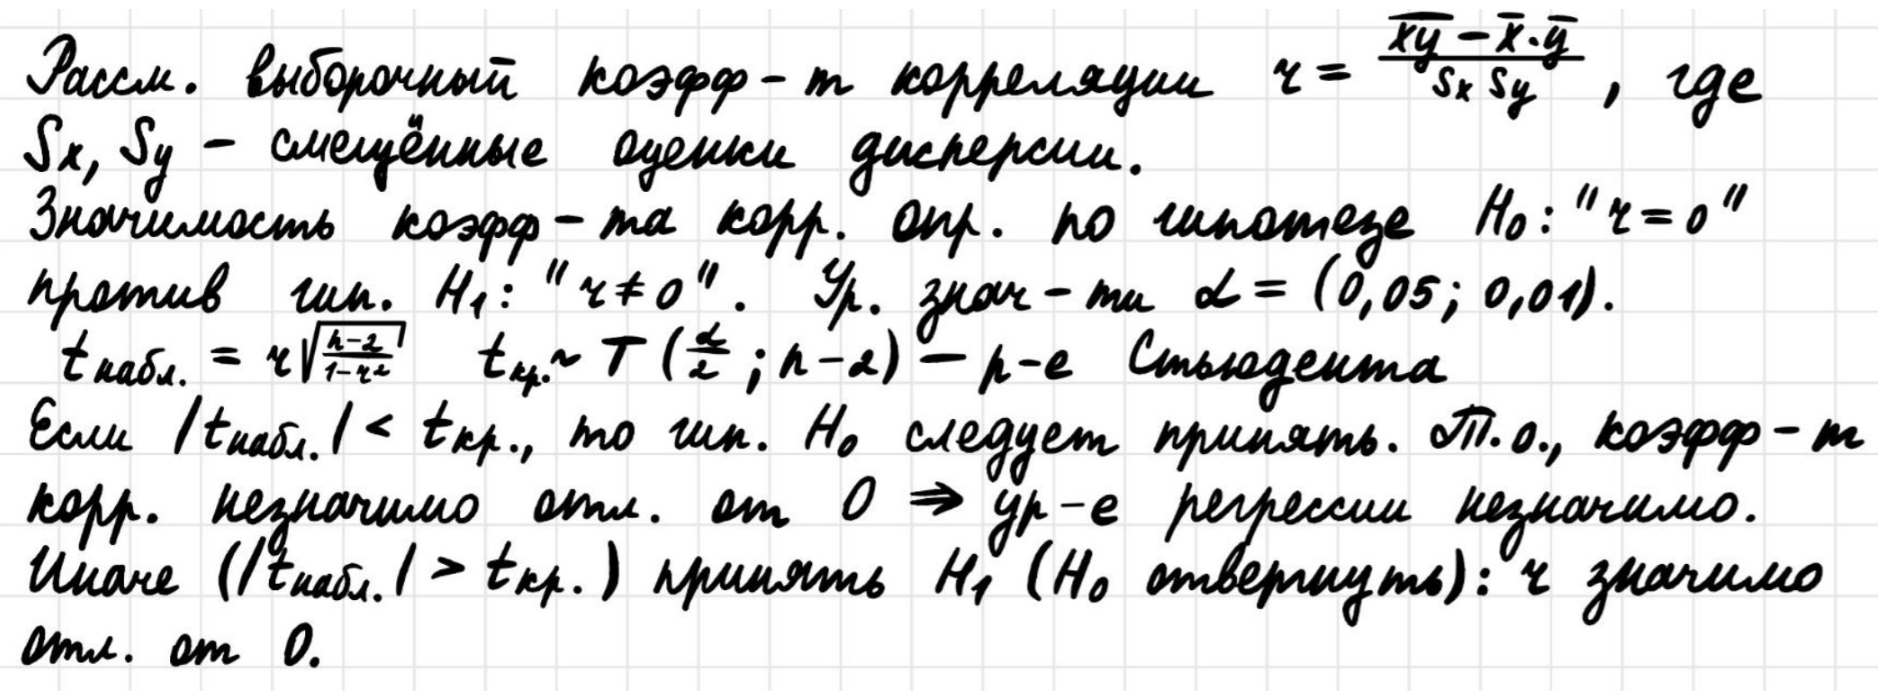 Рассм. выборочный коэфф-т корреляции r = (x̅y̅ - x̅·y̅)/(Sx Sy), где
Sx, Sy - смещённые оценки дисперсии.
Значимость коэфф-та корр. опр. по гипотезе H₀: "r=0"
против гип. H₁: "r≠0". Ур. знач-ти α = (0,05; 0,01).
tнабл. = r√((n-2)/(1-r²)) tкр. ~ T (α/2; n-2) - р-е Стьюдента
Если |tнабл.| < tкр., то гип. H₀ следует принять. Т.о., коэфф-т
корр. незначимо отл. от 0 ⇒ ур-е регрессии незначимо.
Иначе (|tнабл.| > tкр.) принять H₁ (H₀ отвергнуть): r значимо
отл. от 0.